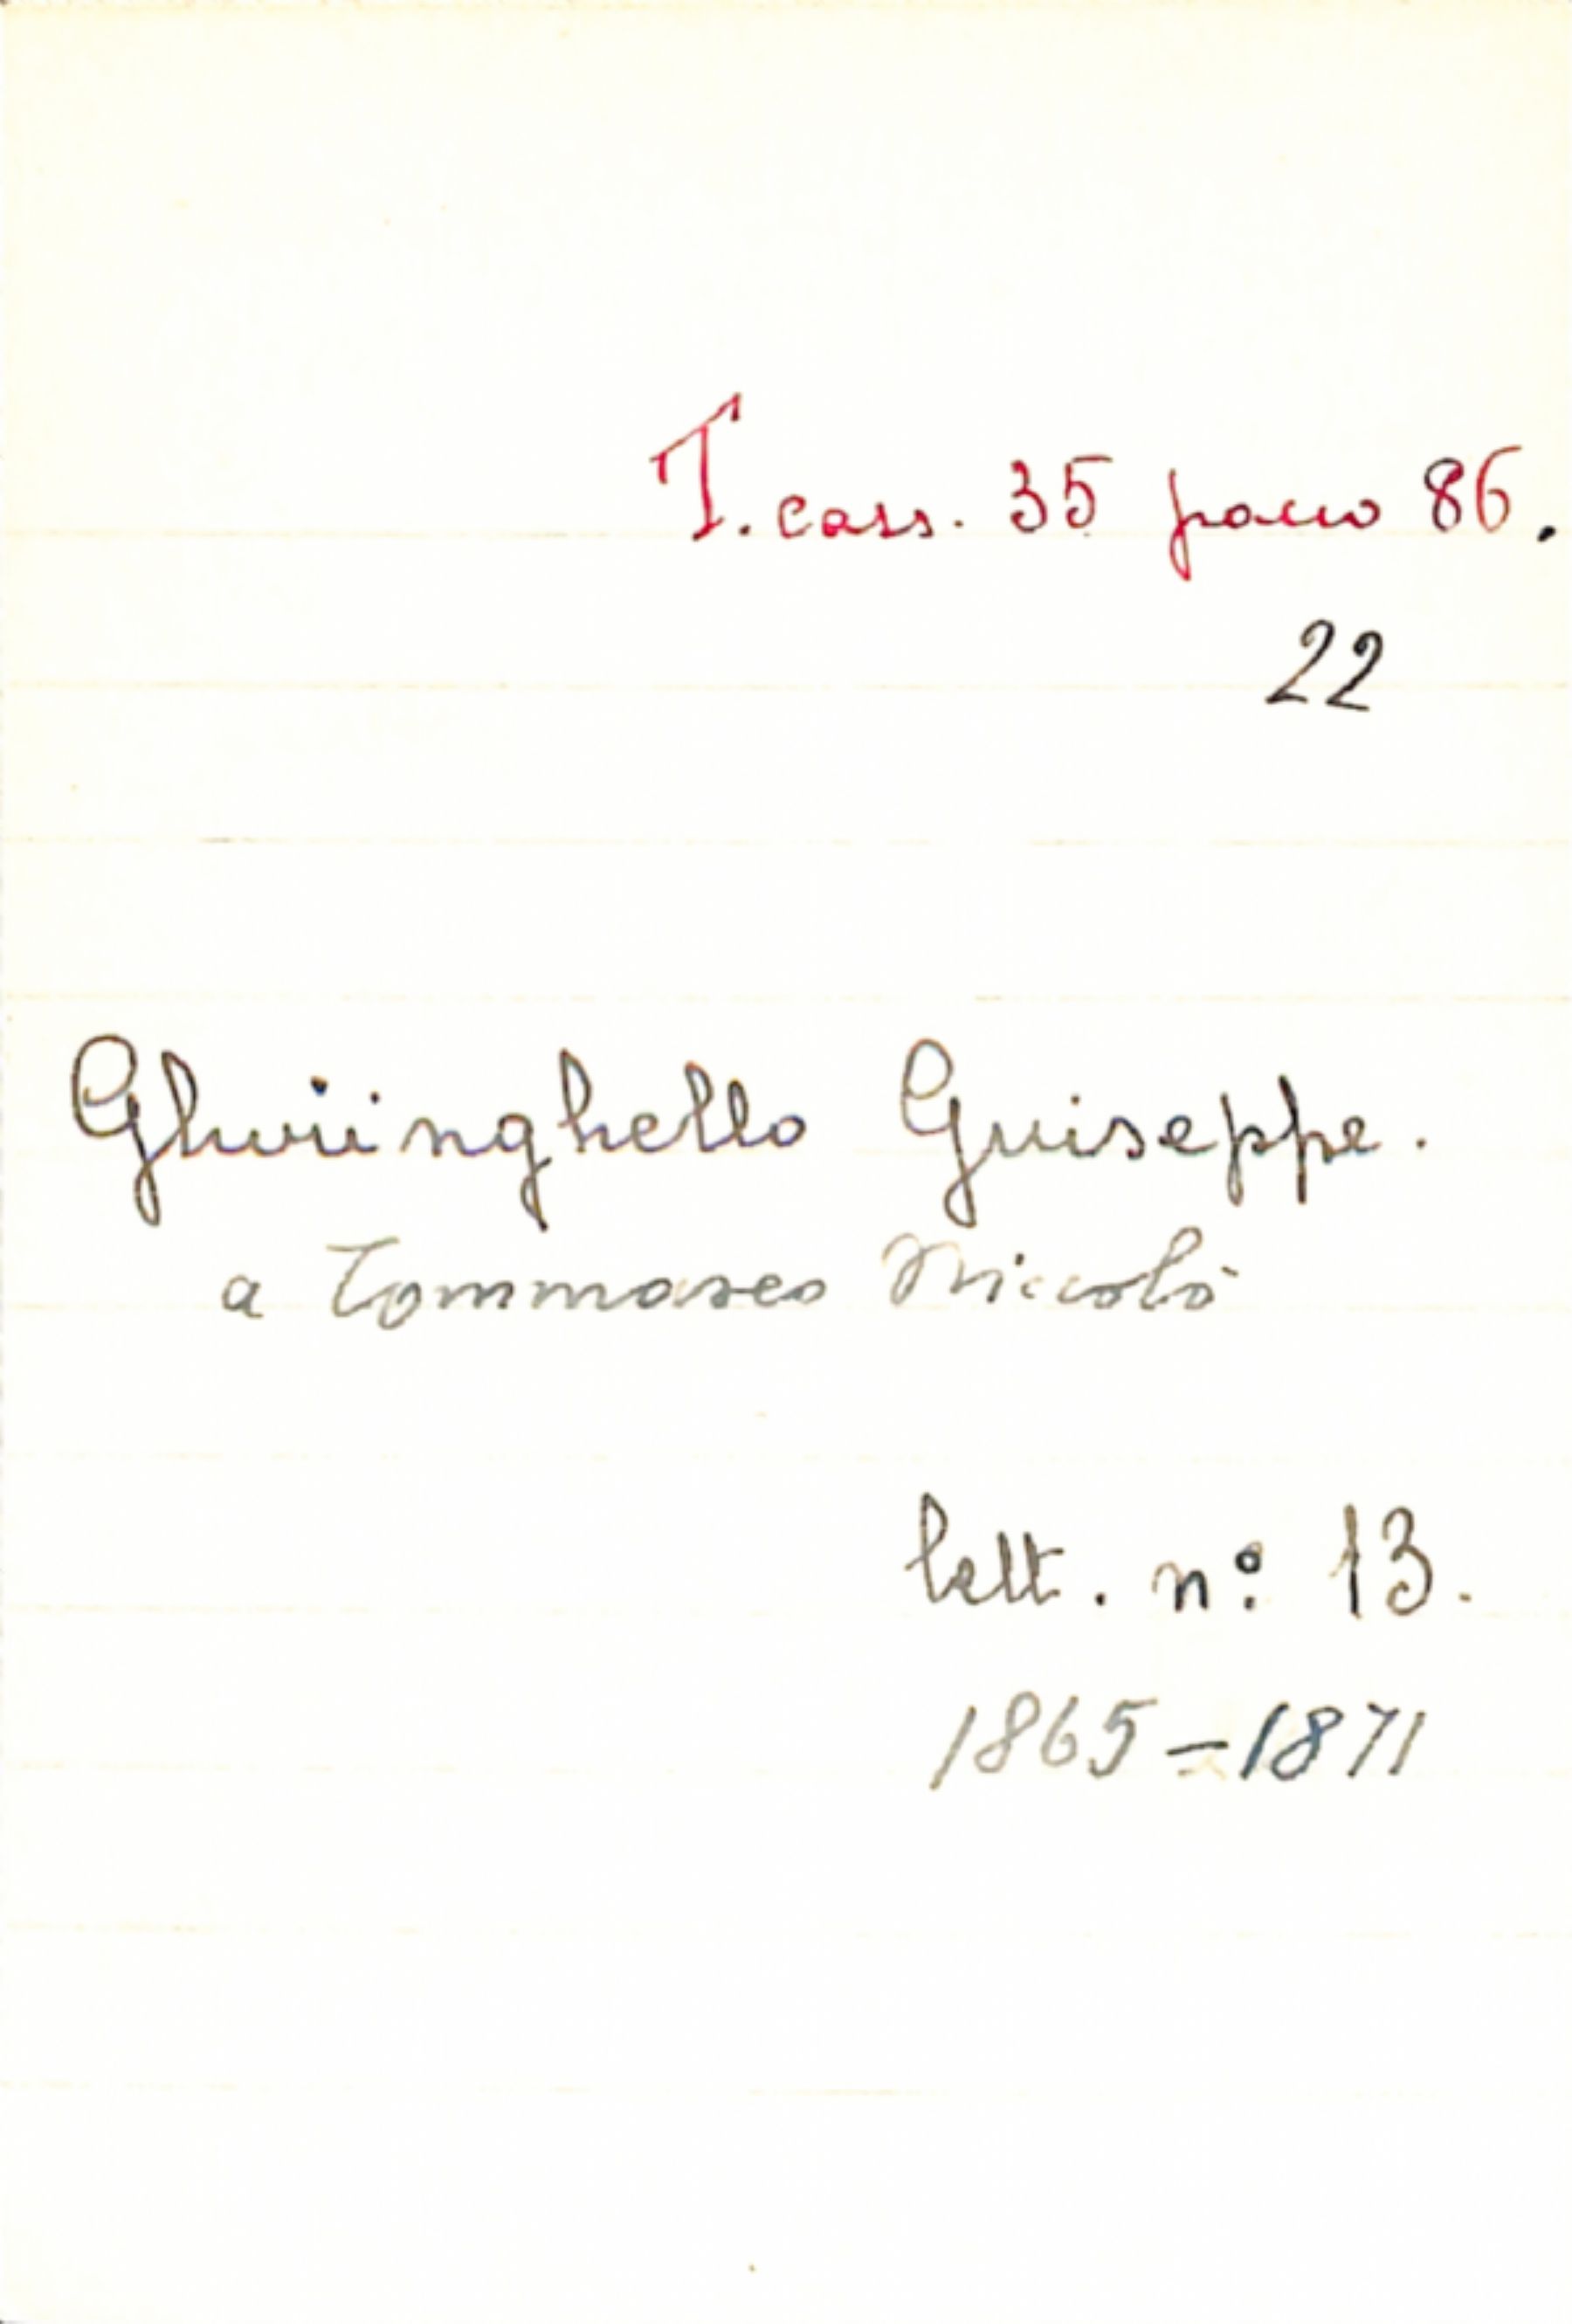 T. cass. 35 pacco 86.
22
Ghiringhello Giuseppe.
a Tommaseo Niccolò
lett. n.° 13.
1865-1871